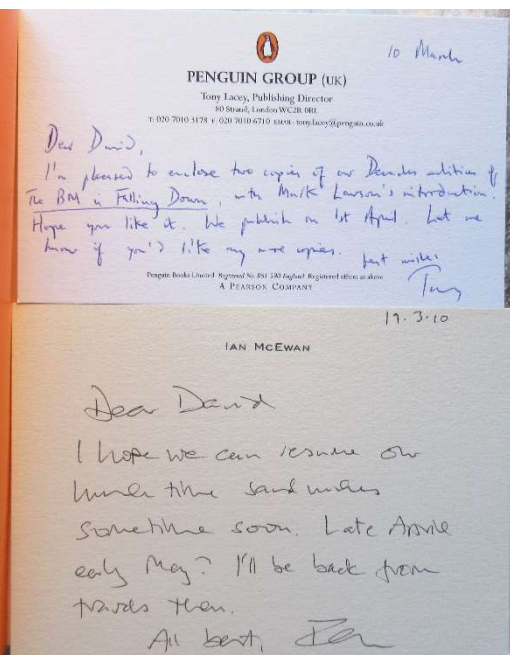 10 March
PENGUIN GROUP (UK)
Tony Lacey, Publishing Director
80 Strand, London WC2R 0RL
T: 020 7010 3178 F: 020 7010 6710 EMAIL: tony.lacey@penguin.co.uk
Dear David,
I'm pleased to enclose two copies of our Decades edition of
The BM is Falling Down, with Mark Lawson's introduction.
Hope you like it. We publish on 1st April. Let me
know if you'd like any more copies. best wishes
Tony
Penguin Books Limited Registered No 861 590 England Registered office as above
A PEARSON COMPANY
19.3.10
IAN MCEWAN
Dear David
I hope we can resume our
lunch time sandwiches
sometime soon. Late April
early May? I'll be back from
travels then.
All best, Ian